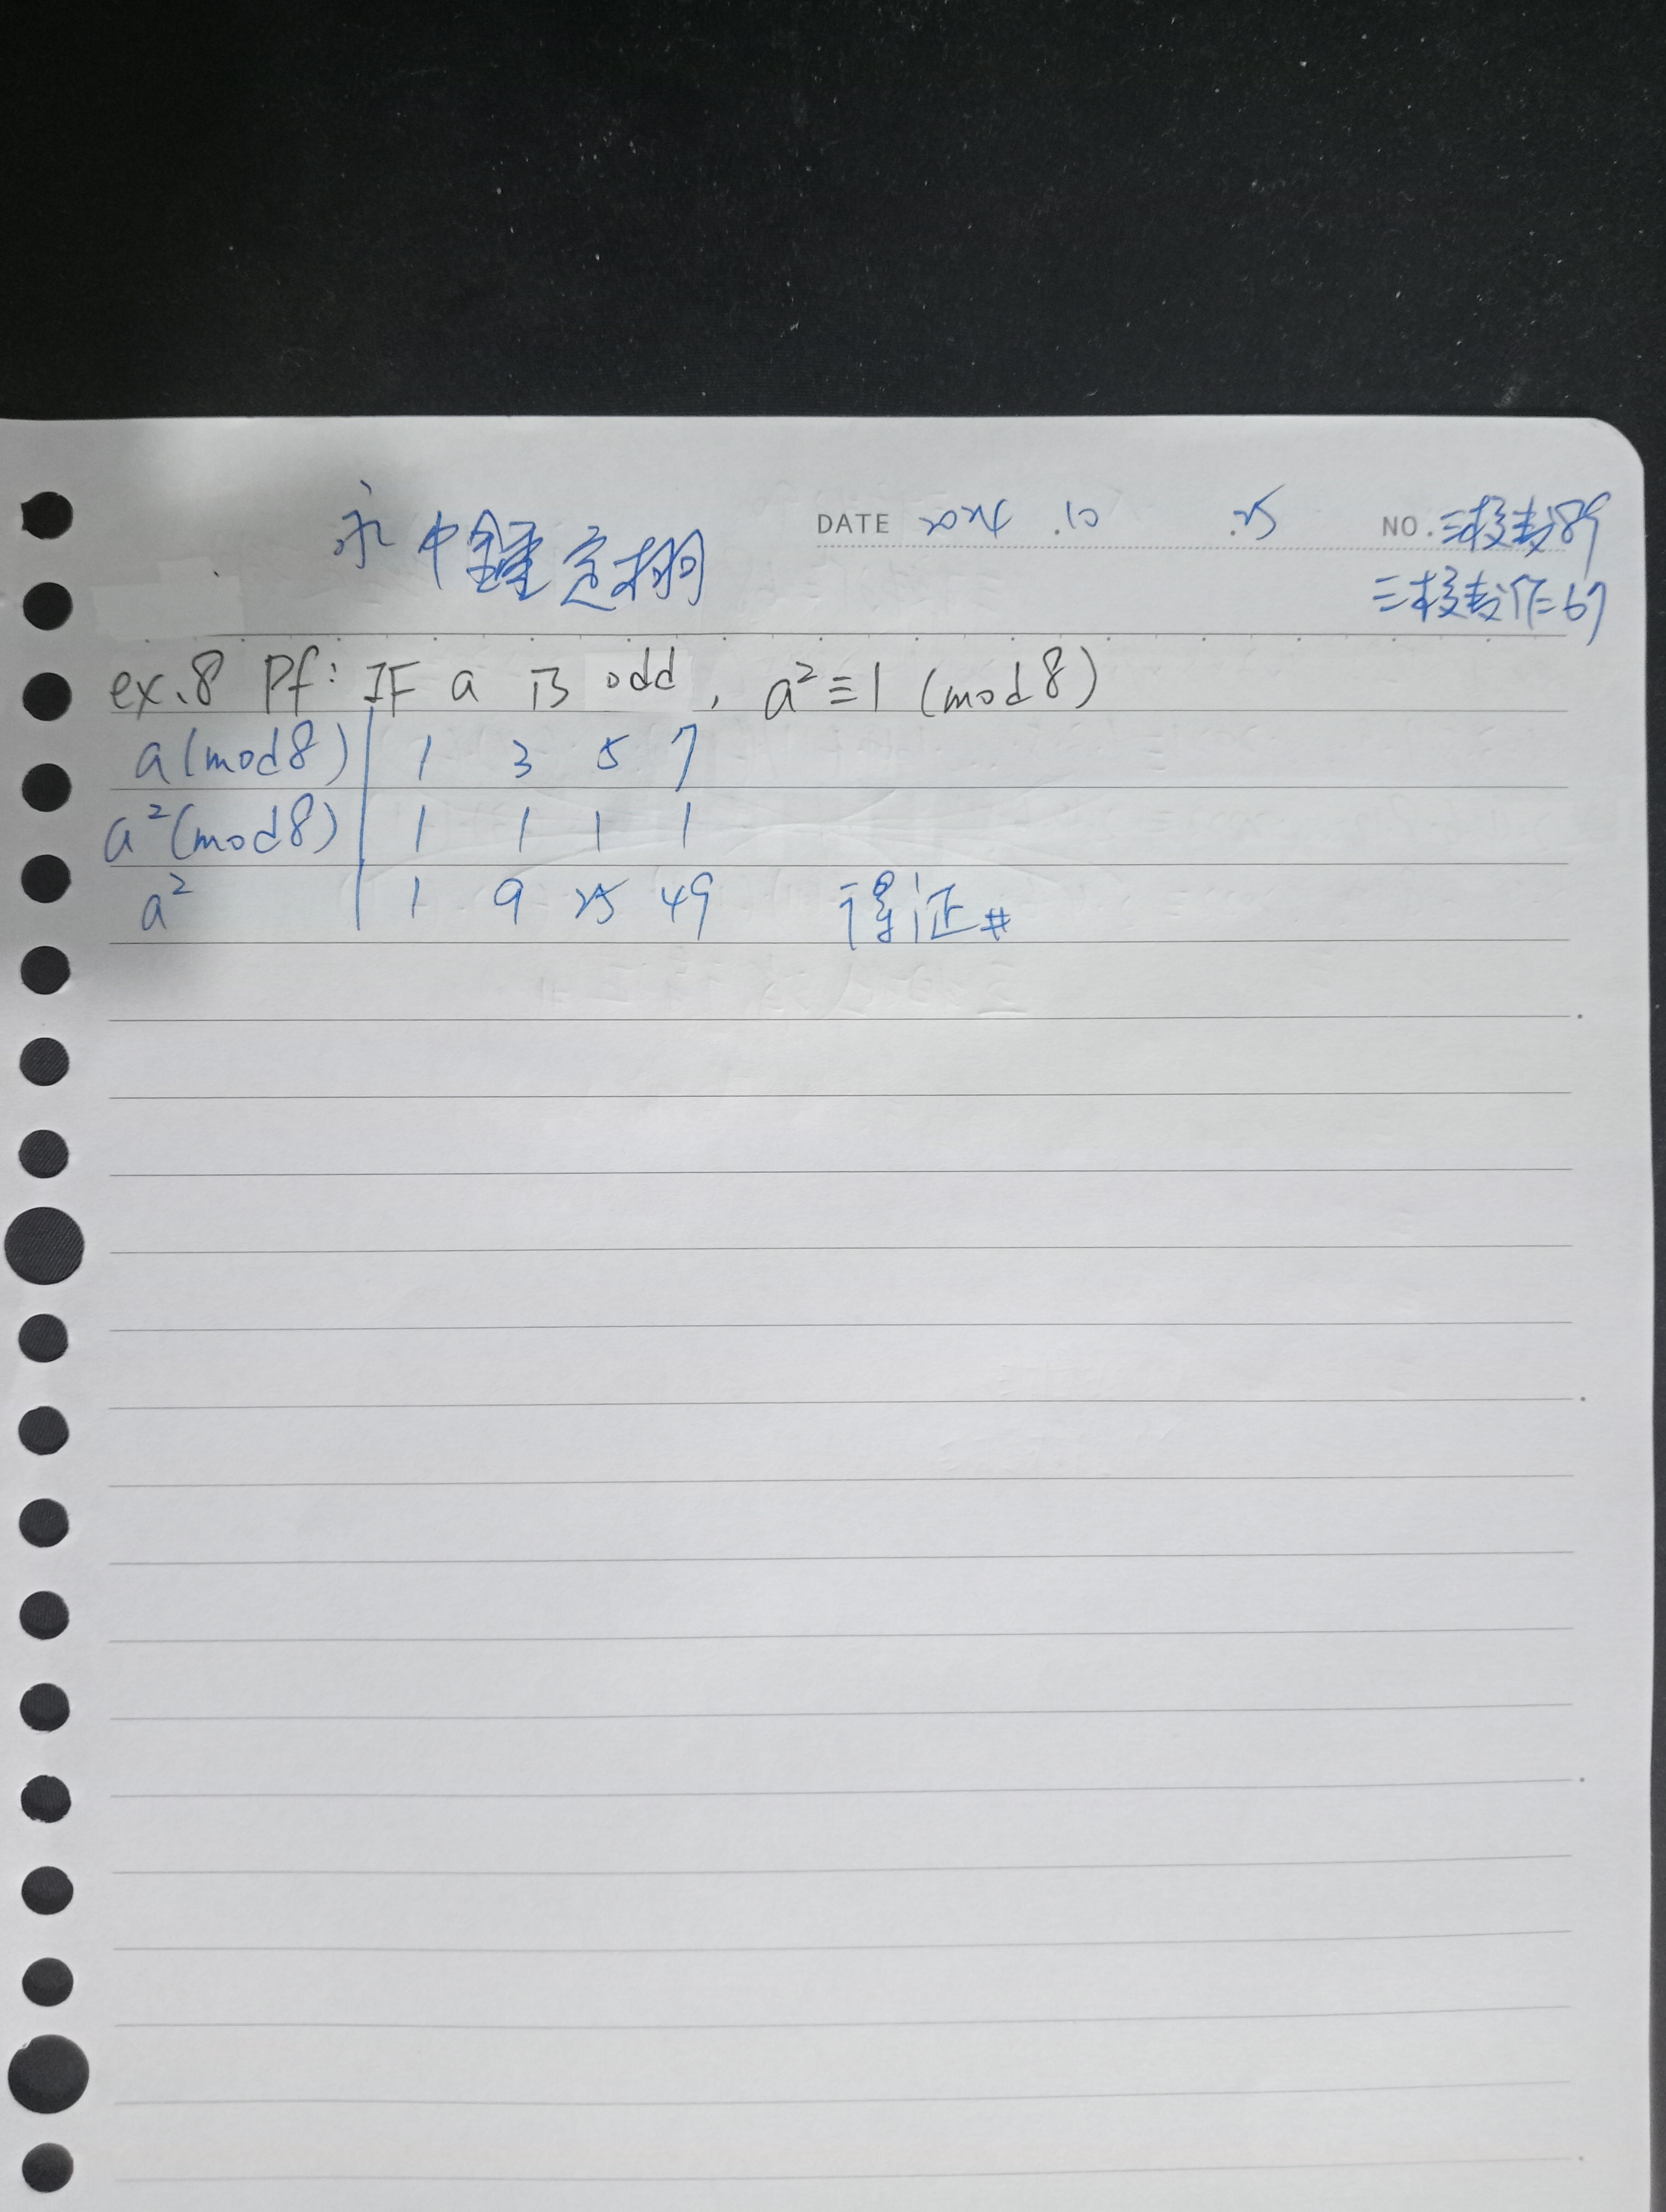 永中鍾定栩 DATE 2024 .10 .25 NO. 三校专89
三校专作67
ex.8 Pf: IF a is odd, a²≡1 (mod8)
a(mod8) | 1 3 5 7
a²(mod8) | 1 1 1 1
a² | 1 9 25 49 得证#